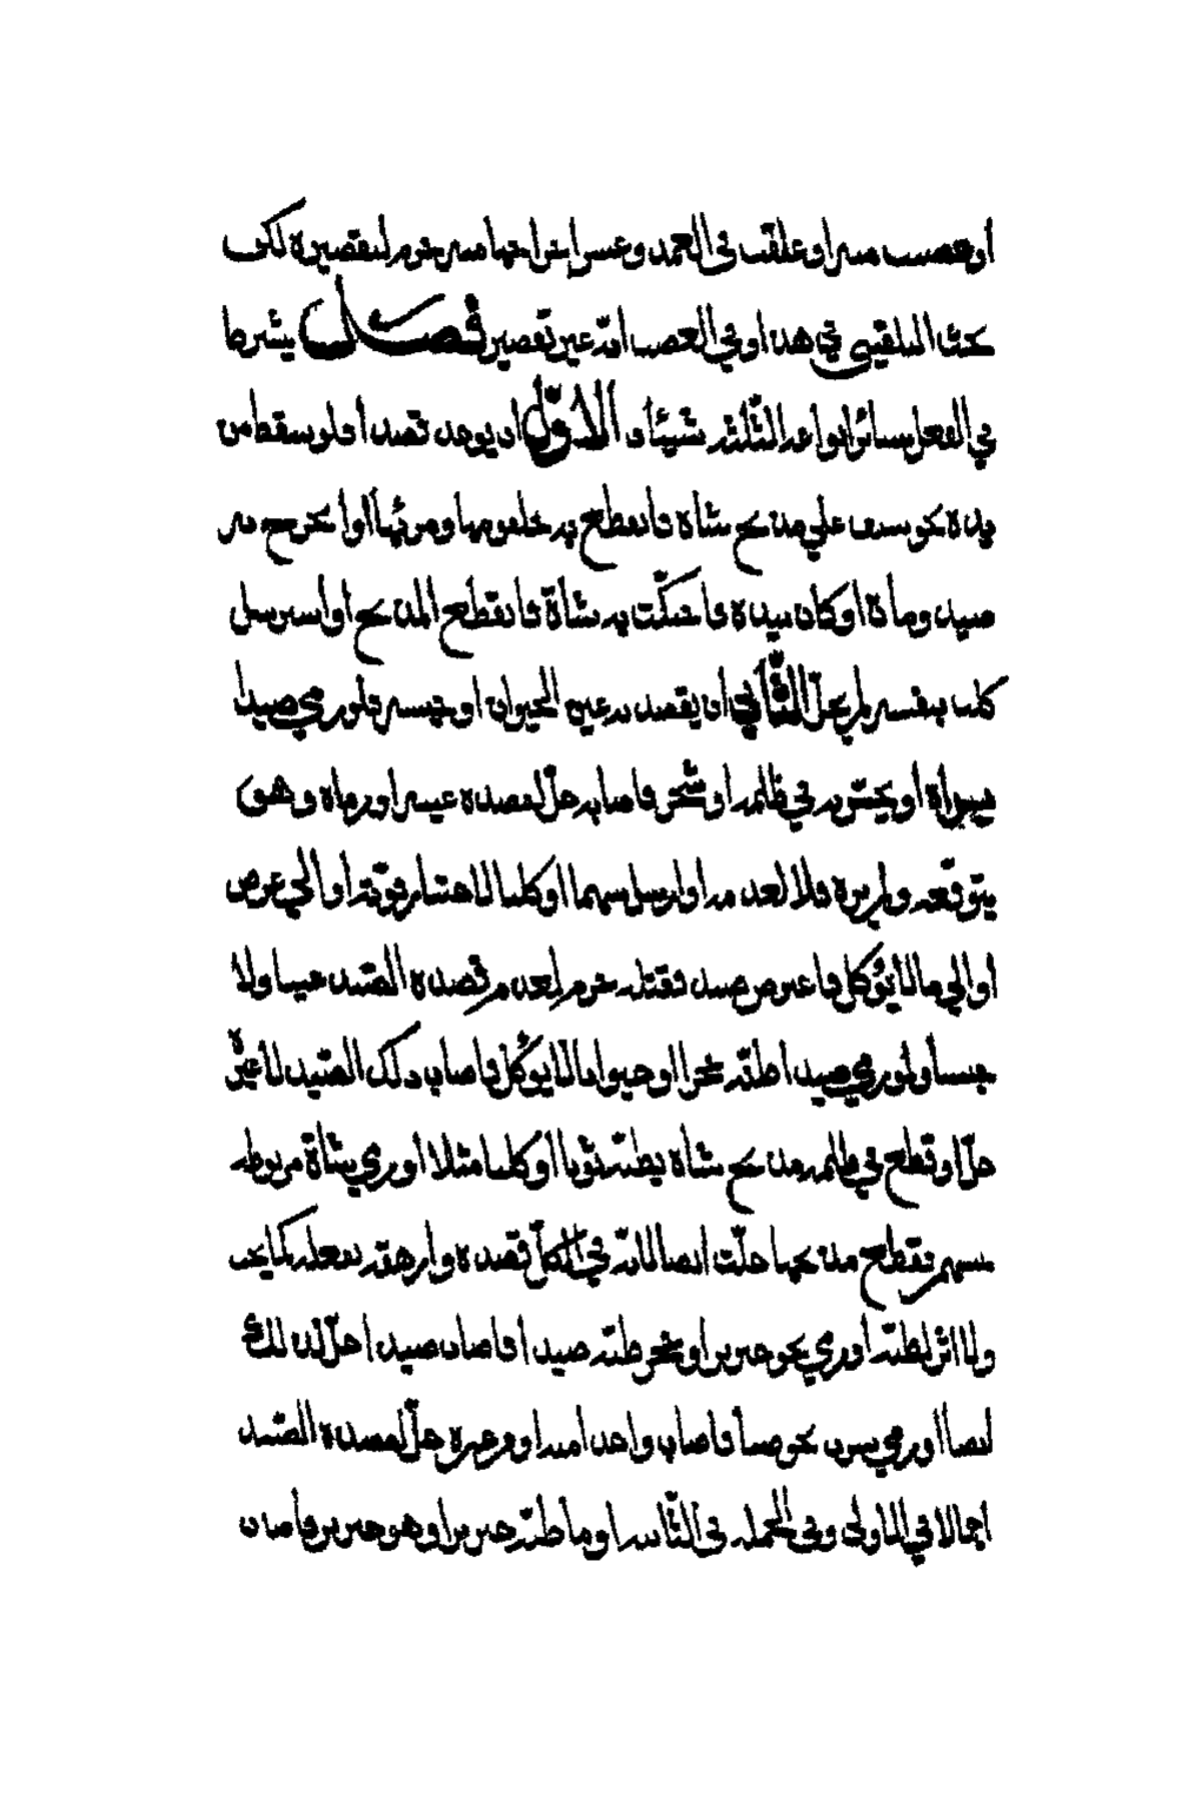 أو غصبت منه أو علقت في الغمد وعسر إخراجها منه حرم لتقصيره لكن
بحث البلقيني في هذا وفي الغصب أنه غير تقصير فصل يشترط
في الفعل بسائر أنواعه الثلاثة شيئان الأول أن يوجد قصد فلو سقط من
يده نحو سيف علي مذبح شاة فانقطع به حلقومها ومريئها أو انجرح به
صيد ومات أو كان بيده فاحتكت به شاة فانقطع المذبح أو استرسل
كلب بنفسه لم يحل الثاني أن يقصد به عين الحيوان أو جنسه فلو رمي صيدا
يراه أو يحس به في ظلمة أو شجر فأصابه حل لقصده عينه أو رماه وهو
يتوقعه ولم يره فلا لعدمه أو أرسل سهما أو كلبا لاختبار قوته أو الي غرض
أو الي ما لا يؤكل فاعترض صيد فقتله حرم لعدم قصده الصيد عينا ولا
جنسا ولو رمي صيدا ظنه حجرا أو حيوانا لا يؤكل فأصاب ذلك الصيد لا غيره
حل أو قطع في ظلمة مذبح شاة يظنه ثوبا أو كلبا مثلا أو رمي شاة مربوطة
بسهم فقطع مذبحها حلت أيضا لأنه في الكل قصده وأزهقه بفعله كما يجب
ولا أثر لظنه أو رمي نحو خنزير أو حجر ظنه صيدا فأصاب صيدا حل كذلك
أيضا أو رمي سرب نحو ضبا فأصاب واحدا منه أو من غيره حل لقصده الصيد
إجمالا في الاولى وفي الجملة في الثانية أو ما ظنه خنزيرا وهو خنزير فأصاب